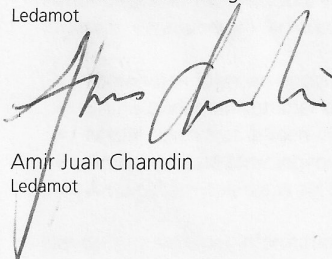 Ledamot
Amir Juan Chamdin
Ledamot